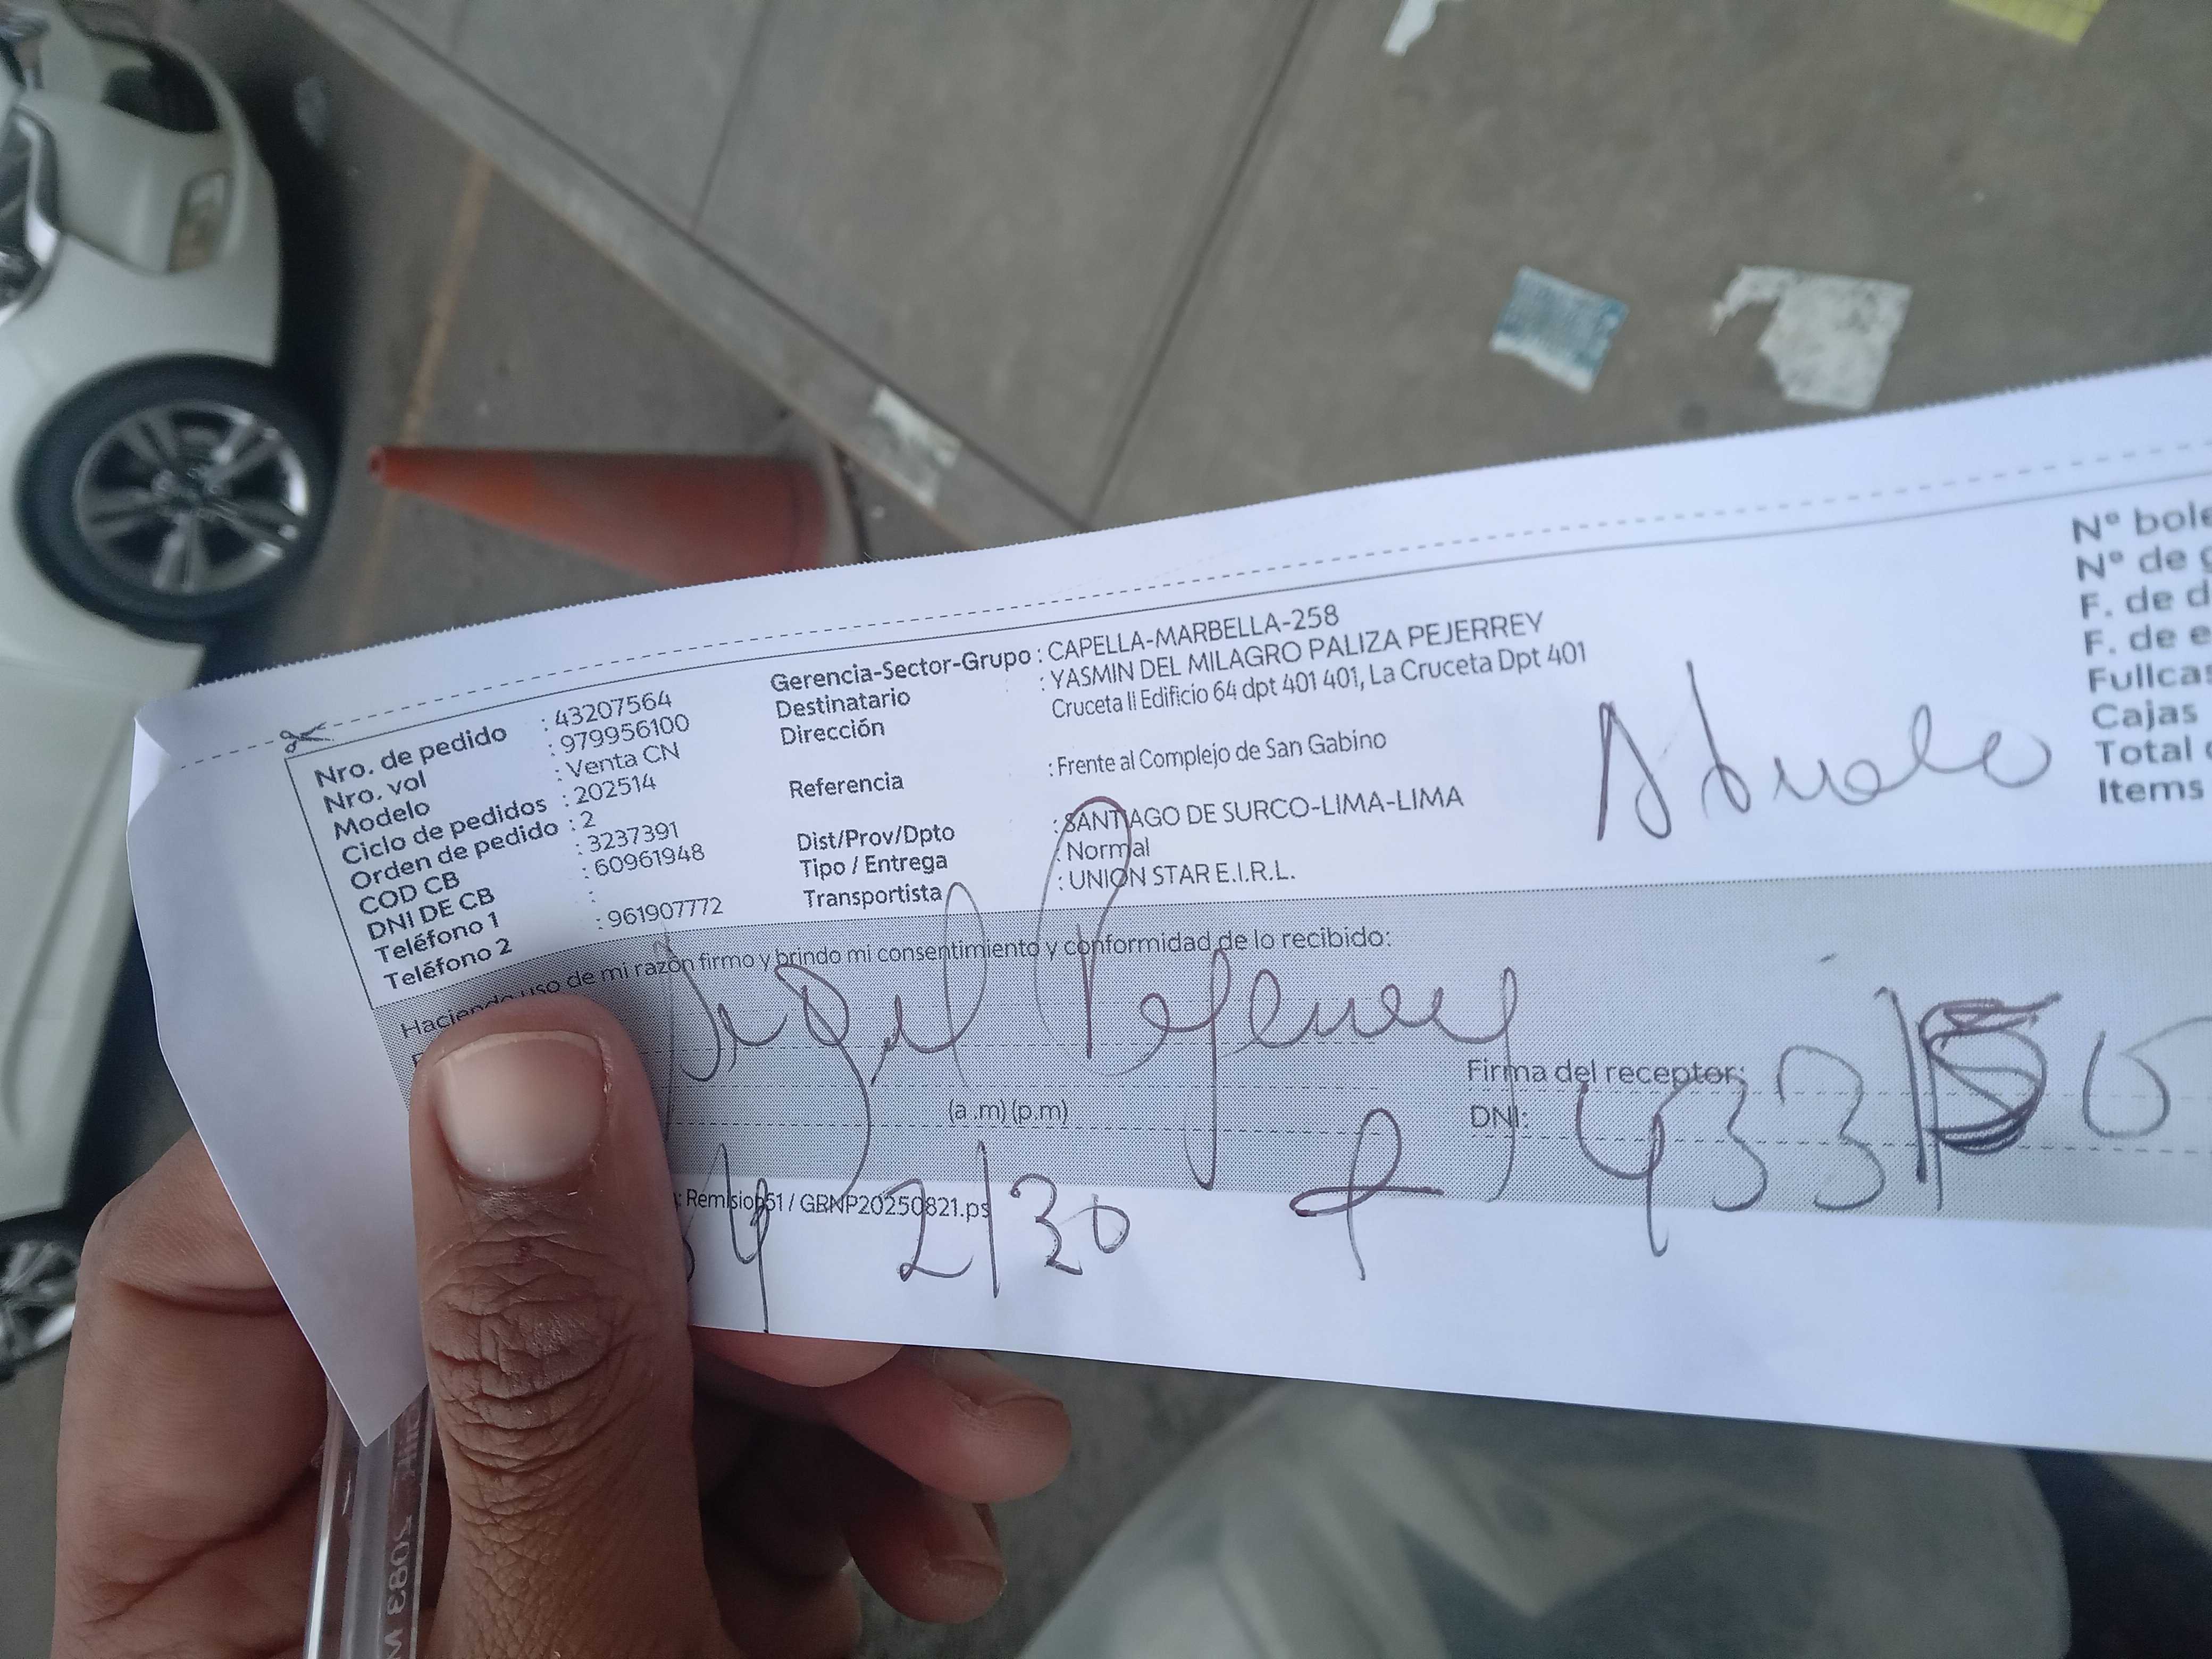 Nro. de pedido : 43207564
Nro. vol : 979956100
Modelo : Venta CN
Ciclo de pedidos : 202514
Orden de pedido : 2
COD CB : 3237391
DNI DE CB : 60961948
Teléfono 1 :
Teléfono 2 : 961907772
Gerencia-Sector-Grupo : CAPELLA-MARBELLA-258
Destinatario : YASMIN DEL MILAGRO PALIZA PEJERREY
Dirección Cruceta II Edificio 64 dpt 401 401, La Cruceta Dpt 401
Referencia : Frente al Complejo de San Gabino
Dist/Prov/Dpto : SANTIAGO DE SURCO-LIMA-LIMA
Tipo / Entrega : Normal
Transportista : UNION STAR E.I.R.L.
Abuelo
N° bole
N° de g
F. de d
F. de e
Fullcas
Cajas
Total
Items
Haciendo uso de mi razón firmo y brindo mi consentimiento y conformidad de lo recibido:
Pejerrey
(a .m) (p.m)
Firma del receptor:
DNI: 433
: Remision61 / GRNP20250821.ps
2/30
2083